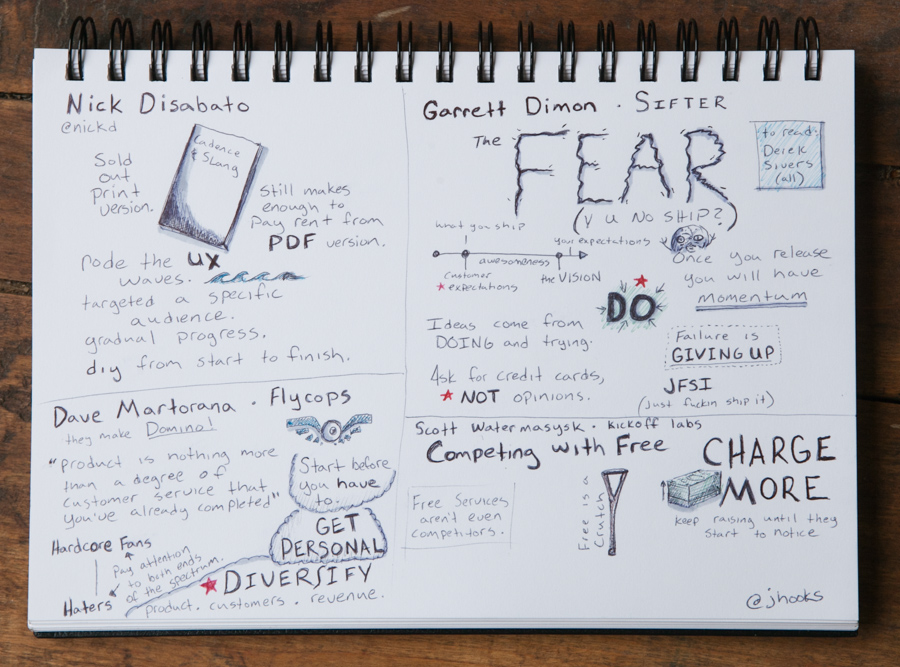 Nick Disabato
@nickd
Cadence
& Slang
Sold
out
print
version.
Still makes
enough to
pay rent from
PDF version.
rode the UX
waves.
targeted a specific
audience.
gradual progress.
diy from start to finish.
Garrett Dimon · SIFTER
The
FEAR
(Y U NO SHIP?)
to read:
Derek
Sivers
(all)
what you ship
your expectations
awesomeness
customer
expectations
the VISION
Once you release
you will have
momentum
DO
Ideas come from
DOING and trying.
Failure is
GIVING UP
Ask for credit cards,
NOT opinions.
JFSI
(just fuckin ship it)
Dave Martorana · Flycops
they make Domino!
"product is nothing more
than a degree of
customer service that
you've already completed"
Start before
you have
to.
GET
PERSONAL
Hardcore Fans
Pay attention
to both ends
of the spectrum.
Haters
DIVERSIFY
product. customers. revenue.
Scott Watermasysk · kickoff labs
Competing with Free
Free Services
aren't even
competitors.
Free is a
Crutch
CHARGE
MORE
keep raising until they
start to notice
@jhooks